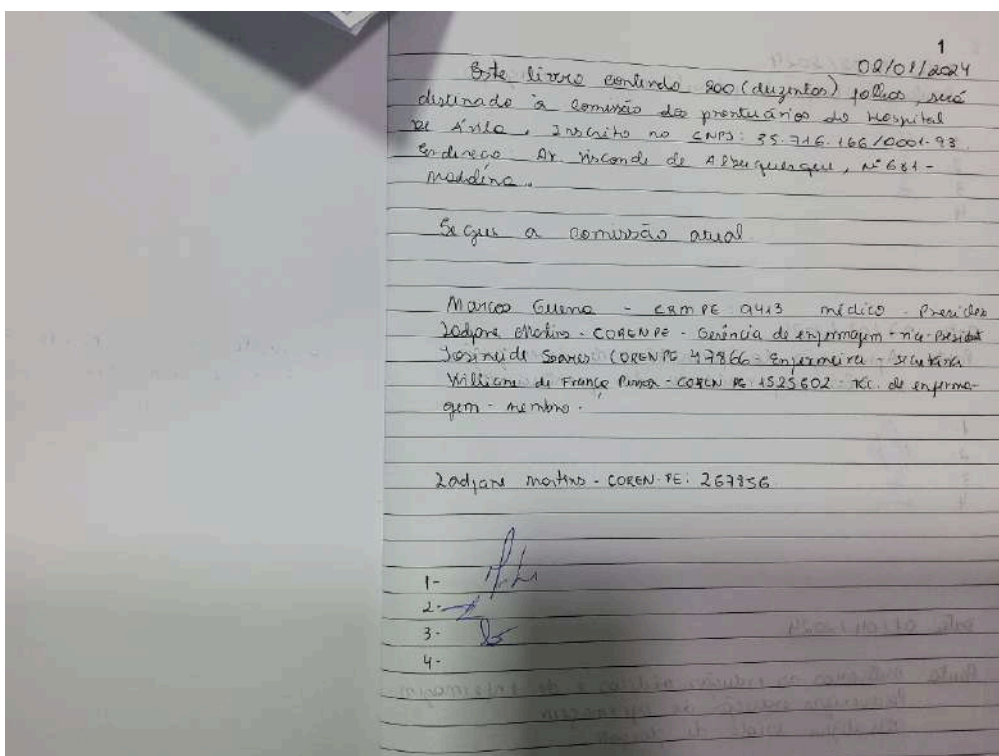 1
02/01/2024
Este livro contendo 200 (duzentos) folhas, será
destinado à comissão dos prontuários do Hospital
de Ávila. Inscrito no CNPJ: 35.716.166/0001-93
Endereço Av. Visconde de Albuquerque, Nº 681 -
Madalena.
Segue a comissão atual
Marcos - CRM PE 9413 médico - Presiden
Ladjane Martins - COREN PE - Gerência de enfermagem - vice-Presidet
Josineide Soares COREN PE 47866 - Enfermeira - secretária
Williane de França - COREN PE 1525602 - Téc. de enferma-
gem - membro.
Ladjane Martins - COREN-PE: 267856
1-
2-
3-
4-